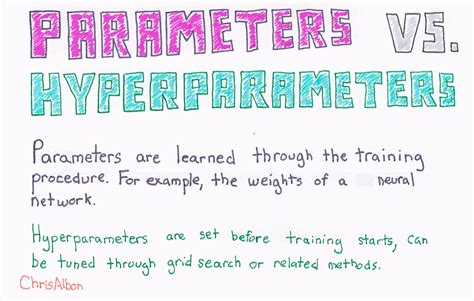 PARAMETERS VS.
HYPERPARAMETERS
Parameters are learned through the training
procedure. For example, the weights of a neural
network.
Hyperparameters are set before training starts, can
be tuned through grid search or related methods.
ChrisAlbon